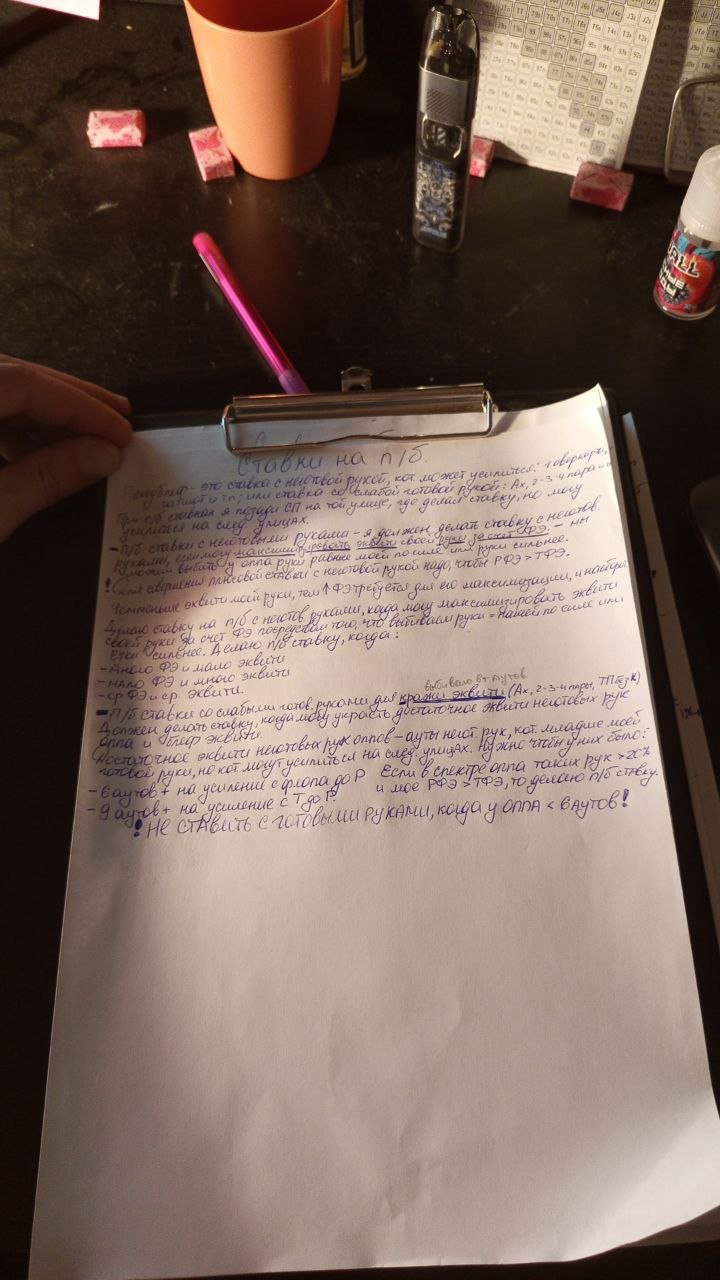 Ставки на п/б.
Полублеф - это ставка с неготовой рукой, кот. может усилиться: 1 оверкарта,
гатшот и т.п; или ставка со слабой готовой рукой: Ах, 2-3-4 пара и
При п/б ставках я позади СП на той улице, где делал ставку, но могу
усилиться на след. улицах.
- П/б ставки с неготовыми руками - я должен делать ставку с неготов.
руками, если могу максимизировать эквити своей руки за счет ФЭ. - мы
сможем выбить у оппа руки равные моей по силе или руки сильнее.
! Для совершения плюсовой ставки с неготовой рукой надо, чтобы РФЭ > ТФЭ.
Чем меньше эквити моей руки, тем ↑ ФЭ требуется для его максимизации, и наоборот
Делаю ставку на п/б с неготов. руками, когда могу максимизировать эквити
своей руки за счет ФЭ посредством того, что выбиваем руки - нашей по силе или
руки сильнее. Делаю п/б ставку, когда:
- много ФЭ и мало эквити
- мало ФЭ и много эквити
- ср ФЭ и ср. эквити.
выбиваю от аутов
- П/б ставки со слабыми готов. руками для кражи эквити (Ах, 2-3-4 пары, ТП без к)
Должен делать ставку, когда могу украсть достаточное эквити неготовых рук
оппа и блеф эквити.
Достаточное эквити неготовых рук оппов - ауты негот. рук, кот. младше моей
готовой руки, но кот могут усилиться на след. улицах. Нужно чтобы у них было:
- 6 аутов + на усиление с флопа до Р Если в спектре оппа таких рук > 20%
- 9 аутов + на усиление с Т до Р. и мое РФЭ > ТФЭ, то делаю п/б ставку.
! Не ставить с готовыми руками, когда у оппа < 6 аутов!